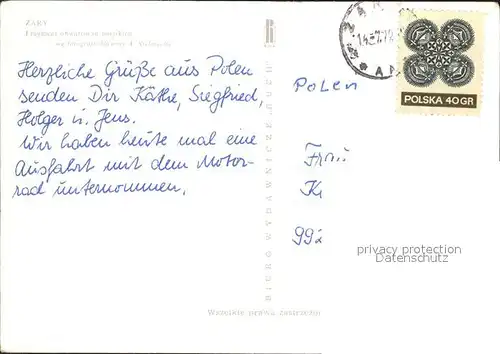 ŻARY
Fragment
Herzliche Grüße aus Polen
senden Dir Käthe, Siegfried,
Holger u. Jens.
Wir haben heute mal eine
Ausfahrt mit dem Motor-
rad unternommen.
BIURO WYDAWNICZE „RUCH”
Wszelkie prawa zastrzeżone
POLSKA 40 GR
Polen
Frau
K
992
privacy protection
Datenschutz